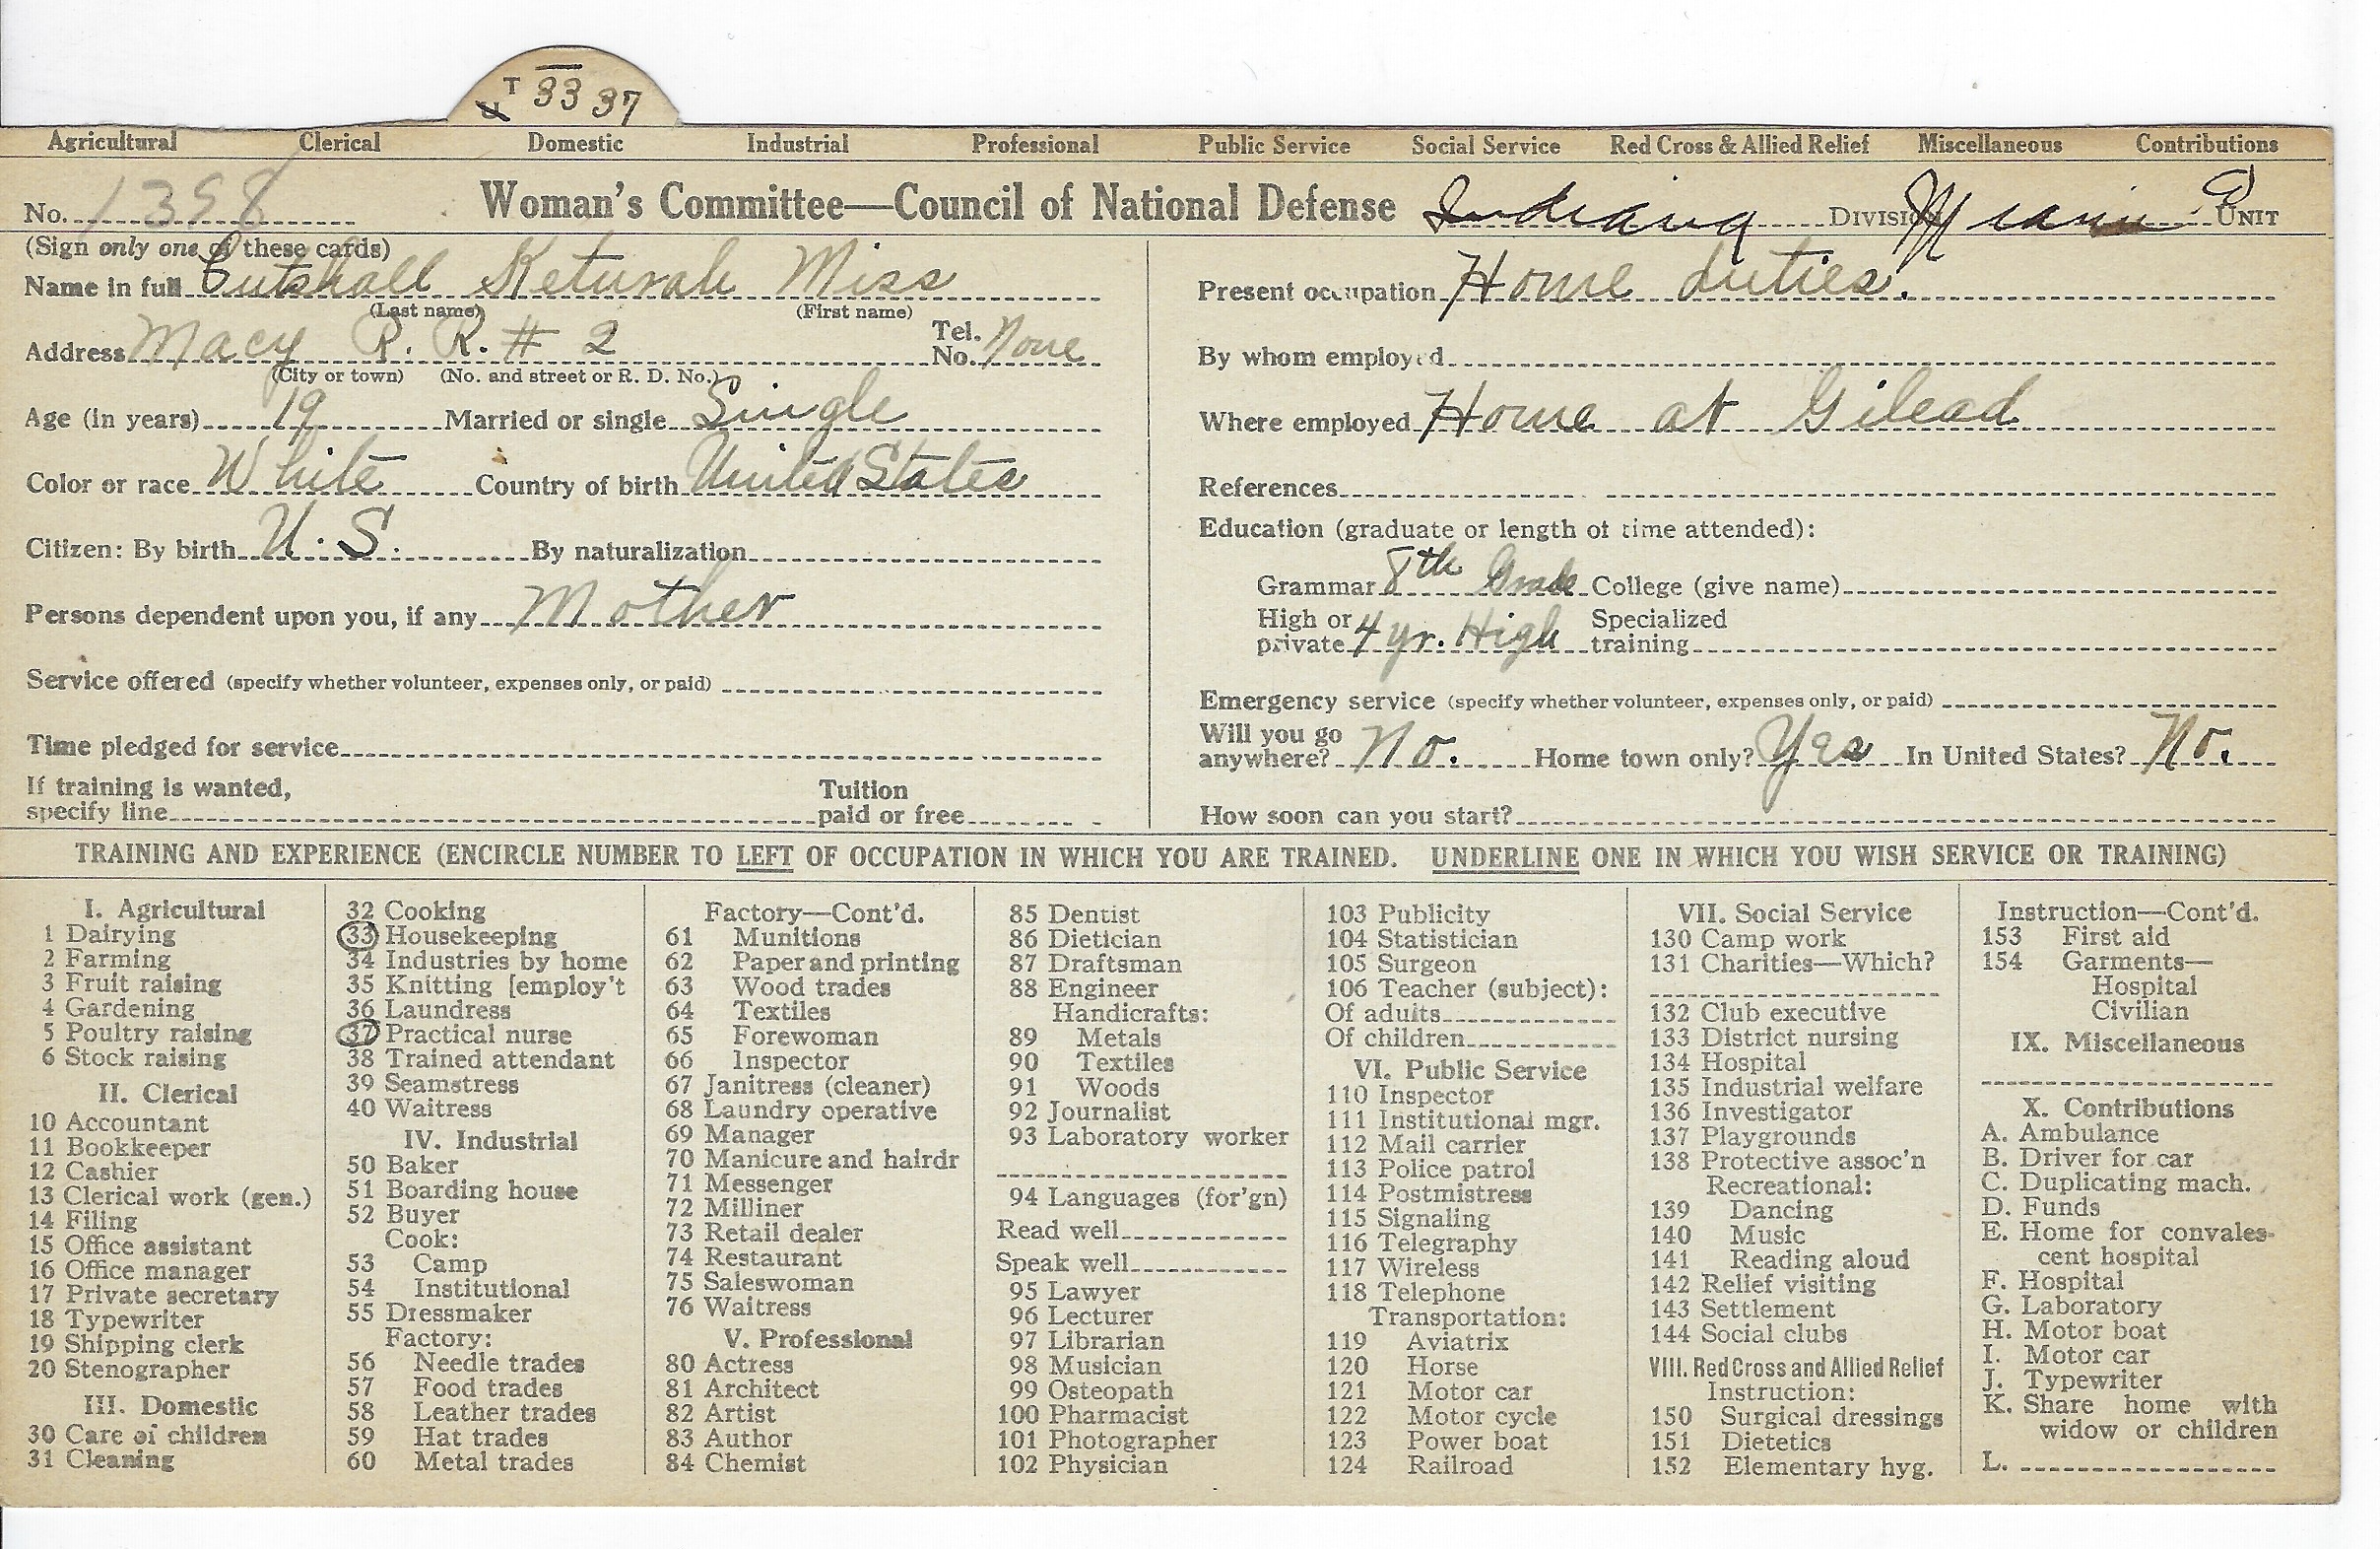 T 33 37
Agricultural Clerical Domestic Industrial Professional Public Service Social Service Red Cross & Allied Relief Miscellaneous Contributions
No. 1398 Woman's Committee—Council of National Defense Indiana DIVISION Miami UNIT
(Sign only one of these cards)
Name in full Cutshall Keturah Miss
(Last name) (First name)
Address Macy R. R. # 2 Tel. No. None
(City or town) (No. and street or R. D. No.)
Age (in years) 19 Married or single Single
Color or race White Country of birth United States
Citizen: By birth U. S. By naturalization
Persons dependent upon you, if any Mother
Service offered (specify whether volunteer, expenses only, or paid)
Time pledged for service
If training is wanted,
specify line
Tuition
paid or free
Present occupation Home duties.
By whom employed
Where employed Home at Gilead
References
Education (graduate or length of time attended):
Grammar 8th Grade College (give name)
High or
private 4 yr. High Specialized
training
Emergency service (specify whether volunteer, expenses only, or paid)
Will you go
anywhere? No. Home town only? Yes In United States? No.
How soon can you start?
TRAINING AND EXPERIENCE (ENCIRCLE NUMBER TO LEFT OF OCCUPATION IN WHICH YOU ARE TRAINED. UNDERLINE ONE IN WHICH YOU WISH SERVICE OR TRAINING)
I. Agricultural
1 Dairying
2 Farming
3 Fruit raising
4 Gardening
5 Poultry raising
6 Stock raising
II. Clerical
10 Accountant
11 Bookkeeper
12 Cashier
13 Clerical work (gen.)
14 Filing
15 Office assistant
16 Office manager
17 Private secretary
18 Typewriter
19 Shipping clerk
20 Stenographer
III. Domestic
30 Care of children
31 Cleaning
32 Cooking
33 Housekeeping
34 Industries by home
35 Knitting [employ't
36 Laundress
37 Practical nurse
38 Trained attendant
39 Seamstress
40 Waitress
IV. Industrial
50 Baker
51 Boarding house
52 Buyer
Cook:
53 Camp
54 Institutional
55 Dressmaker
Factory:
56 Needle trades
57 Food trades
58 Leather trades
59 Hat trades
60 Metal trades
Factory—Cont'd.
61 Munitions
62 Paper and printing
63 Wood trades
64 Textiles
65 Forewoman
66 Inspector
67 Janitress (cleaner)
68 Laundry operative
69 Manager
70 Manicure and hairdr
71 Messenger
72 Milliner
73 Retail dealer
74 Restaurant
75 Saleswoman
76 Waitress
V. Professional
80 Actress
81 Architect
82 Artist
83 Author
84 Chemist
85 Dentist
86 Dietician
87 Draftsman
88 Engineer
Handicrafts:
89 Metals
90 Textiles
91 Woods
92 Journalist
93 Laboratory worker
94 Languages (for'gn)
Read well
Speak well
95 Lawyer
96 Lecturer
97 Librarian
98 Musician
99 Osteopath
100 Pharmacist
101 Photographer
102 Physician
103 Publicity
104 Statistician
105 Surgeon
106 Teacher (subject):
Of adults
Of children
VI. Public Service
110 Inspector
111 Institutional mgr.
112 Mail carrier
113 Police patrol
114 Postmistress
115 Signaling
116 Telegraphy
117 Wireless
118 Telephone
Transportation:
119 Aviatrix
120 Horse
121 Motor car
122 Motor cycle
123 Power boat
124 Railroad
VII. Social Service
130 Camp work
131 Charities—Which?
132 Club executive
133 District nursing
134 Hospital
135 Industrial welfare
136 Investigator
137 Playgrounds
138 Protective assoc'n
Recreational:
139 Dancing
140 Music
141 Reading aloud
142 Relief visiting
143 Settlement
144 Social clubs
VIII. Red Cross and Allied Relief
Instruction:
150 Surgical dressings
151 Dietetics
152 Elementary hyg.
Instruction—Cont'd.
153 First aid
154 Garments—
Hospital
Civilian
IX. Miscellaneous
X. Contributions
A. Ambulance
B. Driver for car
C. Duplicating mach.
D. Funds
E. Home for convales-
cent hospital
F. Hospital
G. Laboratory
H. Motor boat
I. Motor car
J. Typewriter
K. Share home with
widow or children
L.